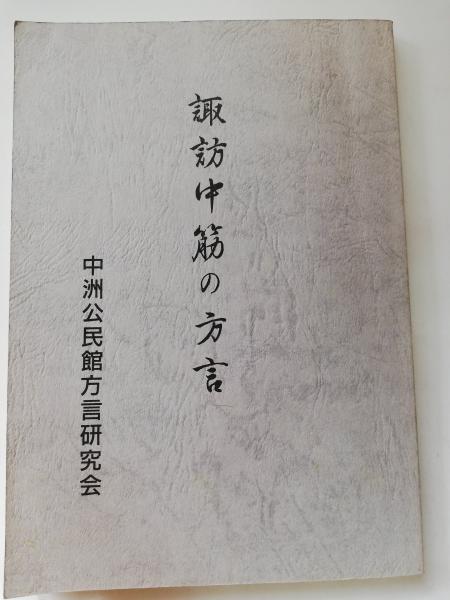 諏訪中筋の方言
中洲公民館方言研究会